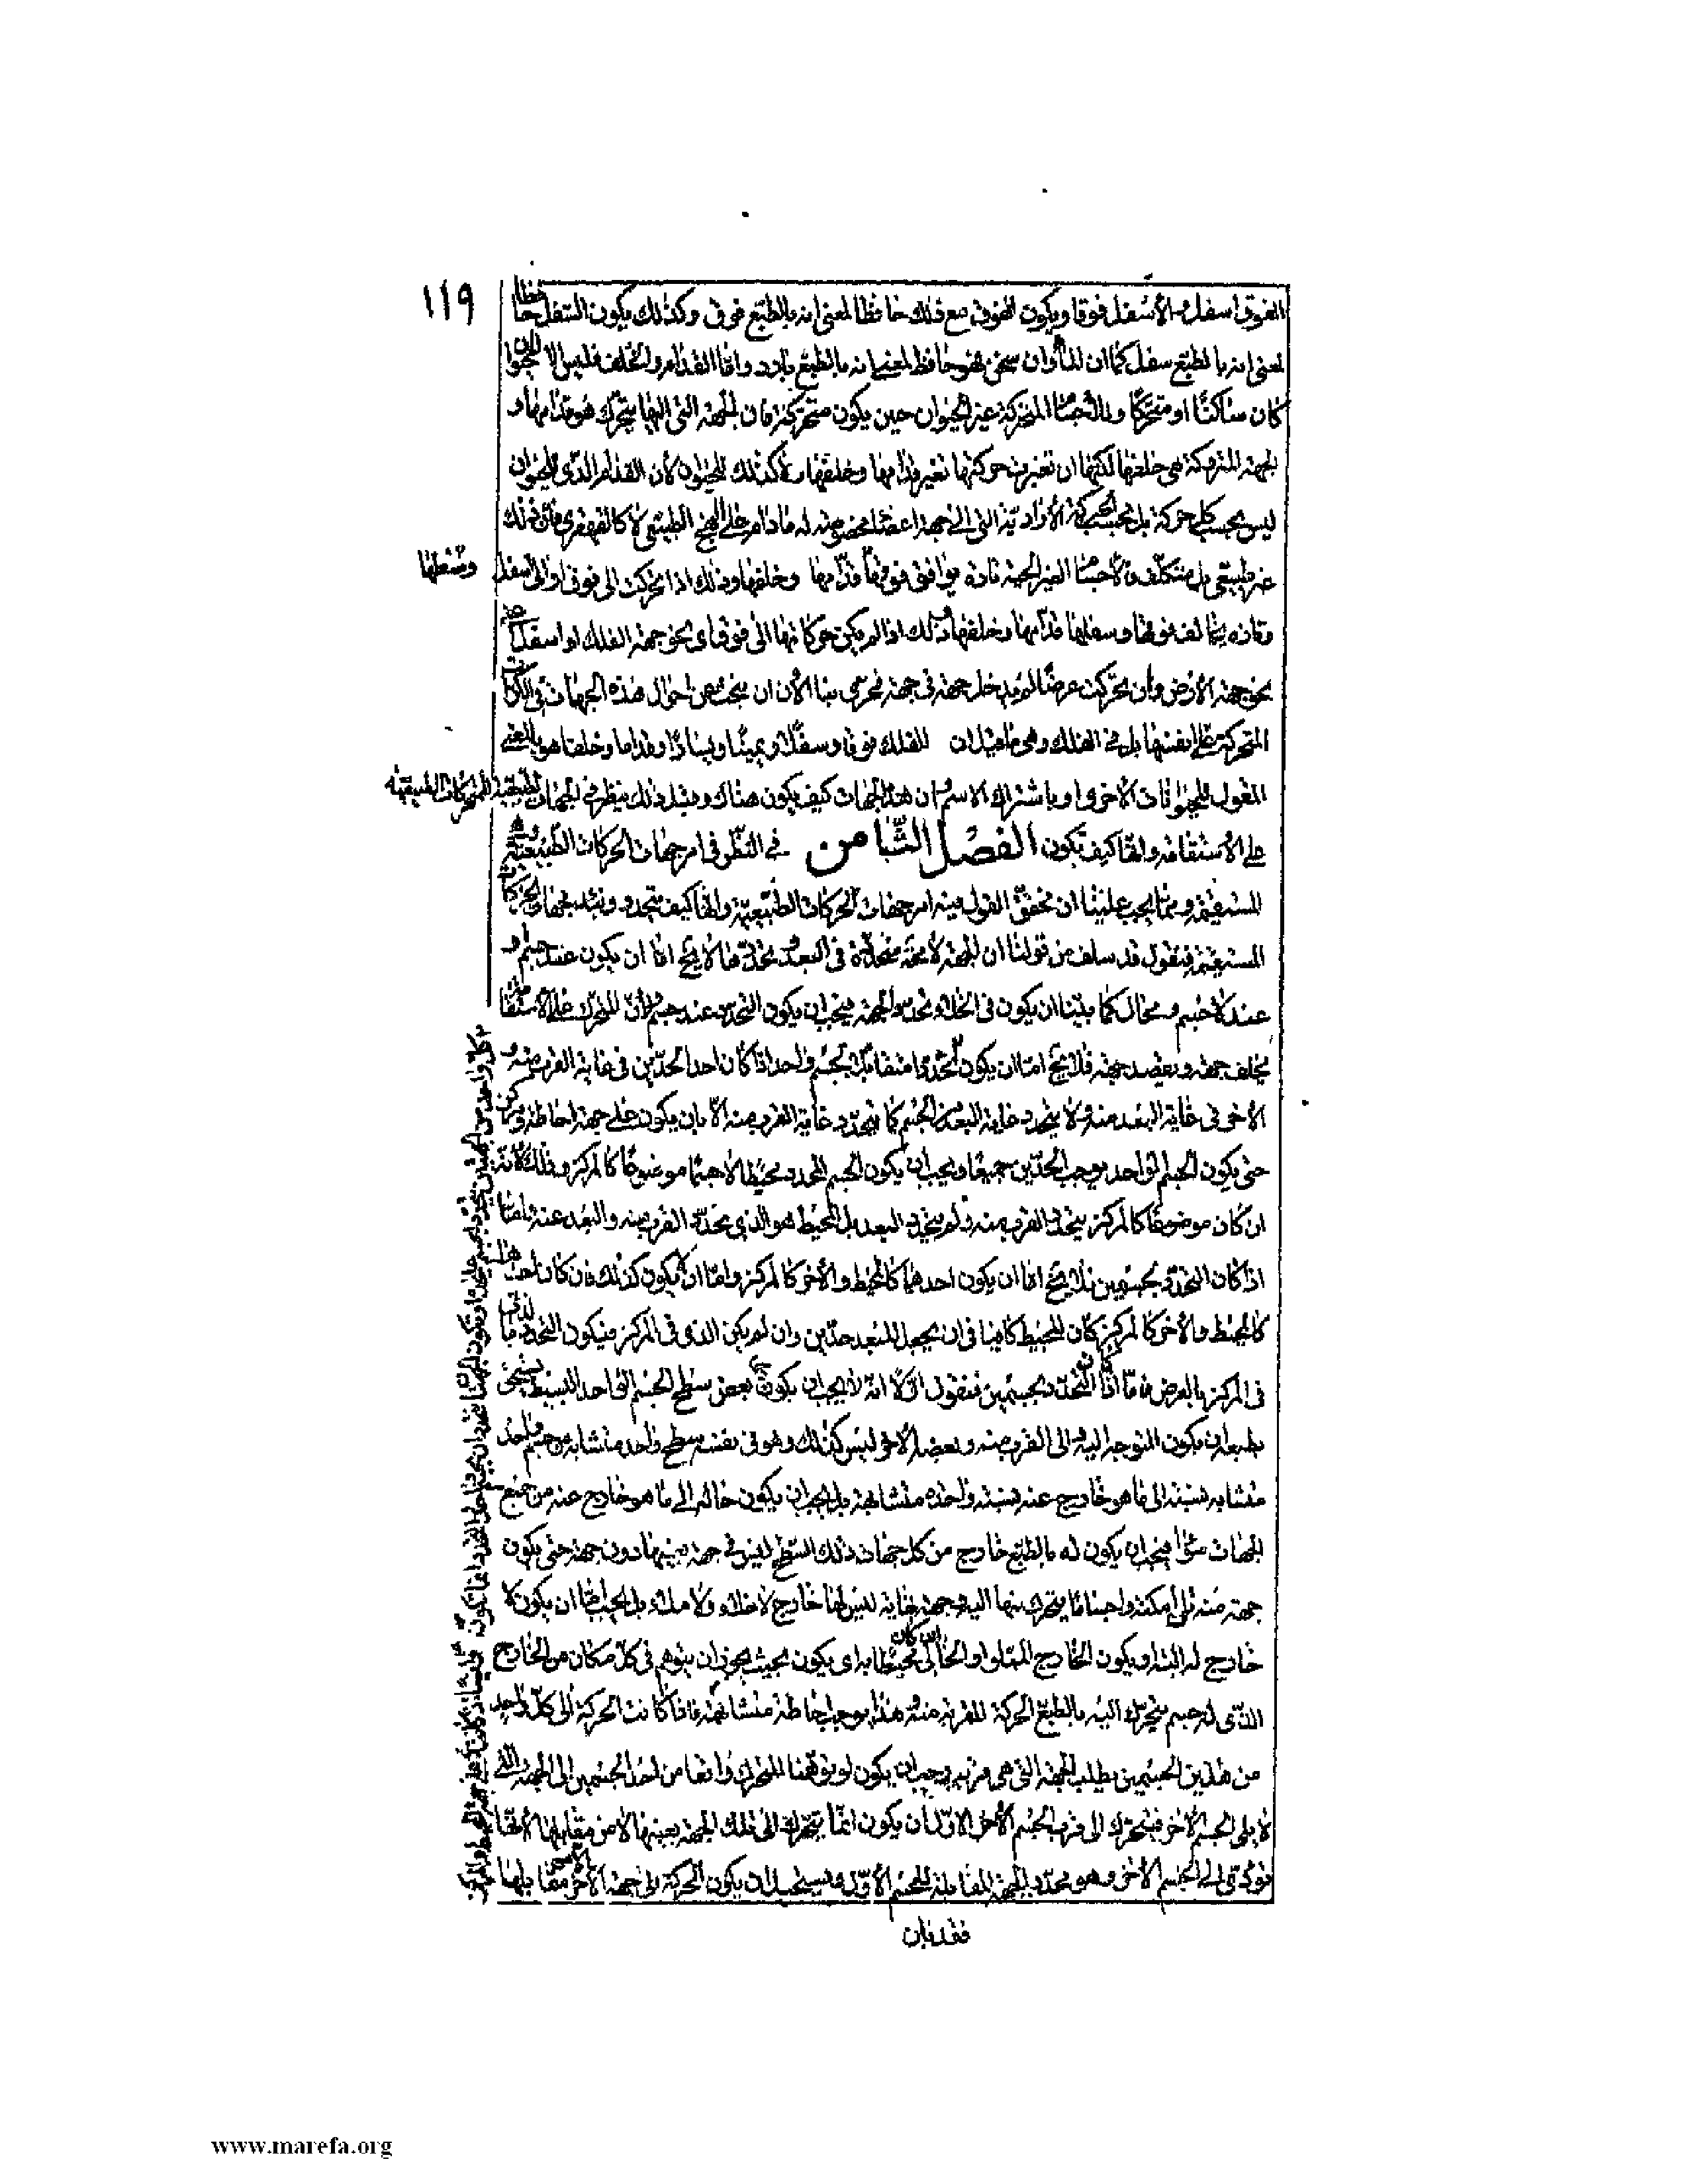 ١١٩
الفوق اسفل والأسفل فوقا ويكون الفوق مع ذلك حافظا لمعنى انه بالطبع فوق وكذلك يكون السفل حافظا
لمعنى انه بالطبع سفل كما ان الماء وان سخن فهو حافظ لمعنى انه بالطبع بارد واما القدام والخلف فليس الا للحيوان
كان ساكنا او متحركا وللأجسام المتحركة غير الحيوان حين يكون متحركة فان الجهة التى اليها يتحرك هو قدامها و
الجهة المتروكة هى خلفها لكنها ان تغيرت حركتها تغير قدامها وخلفها ولا كذلك الحيوان لأن القدام الذى للحيوان
ليس بحسب كل حركة بل بحسب الحركة الأرادية التى الى جهة اعضاء مخصوصة له مادام على النهج الطبيعى لا كالقهقرى فان ذلك
غير طبيعى بل متكلف والأجسام الغير تارة يوافق فوقها قدامها وخلفها وذلك اذا تحركت الى فوق او الى اسفل
وسفلها
وتارة يخالف فوقها وسفلها قدامها وخلفها وذلك اذا لم يكن حركاتها الى فوق اى نحو جهة الفلك او اسفل اى
نحو جهة الأرض وان تحركت عرضا لم يدخل جهة فى جهة فحرى بنا الأن ان نبحث عن احوال هذه الجهات فى الكرات
المتحركة على انفسها بل فى الفلك وهى ما قيل ان للفلك فوقا وسفلا ويمينا ويسارا وقداما وخلفا هو بالمعنى
المقول للحيوانات الأخرى او باشتراك الاسم وان هذه الجهات كيف يكون هناك وقبل ذلك ينظر فى الجهات الطبيعية للمتحركات الطبيعية
على الأستقامة وانها كيف تكون الفصل الثامن في النظر فى امر جهات الحركات الطبيعية
المستقيمة ومما يجب علينا ان نحقق القول فيه امر جهات الحركات الطبيعية وانها كيف يتحدد ونبتدى بجهات الحركات
المستقيمة فنقول قد سلف من قولنا ان الجهة لا محة متحددة فى البعد وتحددها لا يخ اما ان يكون عند جسم او
عند لا جسم ومحال كما بينا ان يكون فى الخلاء تحدد الجهة فيجب ان يكون التحدد عند جسم ولأن المتحرك على الأستقامة
يخلف جهة ويقصد جهة فلا يخ اما ان يكون تحددا متقابلا بجسم واحد اذا كان احد الحدين فى غاية القرب منه و
الأخر فى غاية البعد منه ولا يتحدد غاية البعد من الجسم كما يتحدد غاية القرب منه الا بان يكون على جهة احاطة ومركز
حتى يكون الجسم الواحد يوجب الحدين جميعا ويجب ان يكون الجسم المحدد محيطا لا جسما موضوعا كالمركز وذلك لأنه
ان كان موضوعا كالمركز يتحدد القرب منه ولم يتحدد البعد بل المحيط هو الذى يحدد القرب منه والبعد عنه واما
اذا كان التحدد بجسمين فلا يخ اما ان يكون احدهما كالمحيط والأخر كالمركز واما ان لا يكون كذلك فان كان احدهما
كالمحيط والأخر كالمركز كان المحيط كافيا فى ان يجعل للبعد حدين وان لم يكن الذى فى المركز فيكون التحدد بما
فى المركز بالعرض واما اذا كان التحدد بجسمين فنقول اولا انه لا يجب ان يكون بعض سطح الجسم الواحد البسيط يستحق
بطبعه ان يكون المتوجه اليه الى القرب منه وبعضه الأخر ليس كذلك وهو فى نفسه سطح واحد متشابه من جسم واحد
متشابه نسبته الى ما هو خارج عنه نسبة واحدة متشابهة بل يجب ان يكون حاله الى ما هو خارج عنه من جميع
الجهات سواء فيجب ان يكون له بالطبع خارج من كل جهات ذلك السطح ليس فى جهة بعينها دون جهة حتى يكون
جهة منه تلى امكنة واجساما يتحرك منها اليه وجهة غاية ليس لها خارج لا خلاء ولا ملاء بل يجب اما ان يكون لا
خارج له البتة او يكون الخارج المملو او الخالى ان كان محيطا به اى يكون بحيث يجوز ان يتوهم فى كل مكان من الخارج
الذى له جسم يتحرك اليه بالطبع الحركة للقرب منه وهذا يوجب احاطة متشابهة فاذا كانت الحركة الى كل واحد
من هذين الجسمين يطلب الجهة التى هى قربه وجب ان يكون لو توهمنا المتحرك واقعا من احد الجسمين الى الجهة التى
لا يلى الجسم الأخر فيتحرك الى قرب الجسم الأول ان يكون انما يتحرك الى تلك الجهة بعينها لا من مقابلها لأنها
تؤدى الى الجسم الأخر وهو محدد الجهة المقابلة للجسم الأول ويستحيل ان يكون الحركة الى جهة الا من مقابلها
فقد بان
www.marefa.org